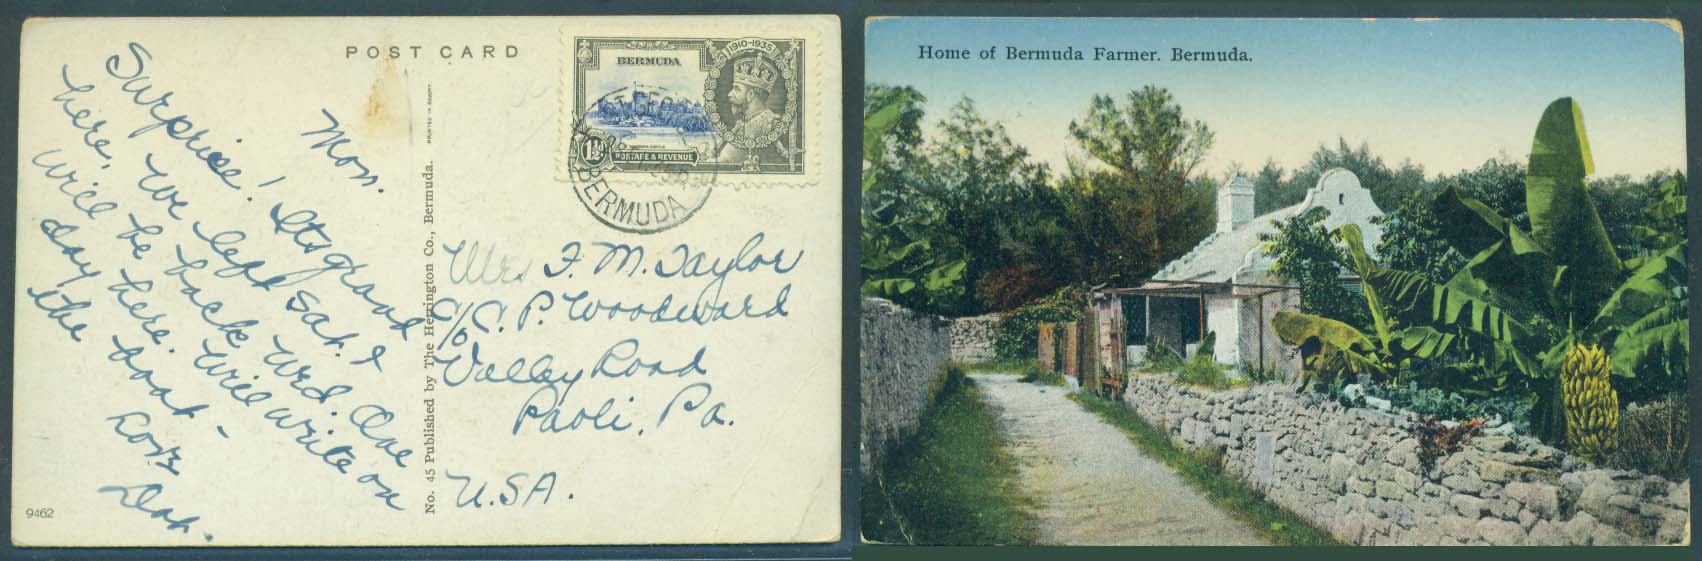 POST CARD
Mon.
Surprise! Its grand
here. We left Sat. &
will be back Wed. One
day here. Will write on
the boat -
Love
Dot.
No. 45 Published by The Herrington Co., Bermuda.
PRINTED IN SAXONY
9462
1910-1935
BERMUDA
WINDSOR CASTLE
1½d
POSTAGE & REVENUE
BERMUDA
Mrs F. M. Taylor
C/o C. P. Woodward
Valley Road
Paoli, Pa.
U.S.A.
Home of Bermuda Farmer. Bermuda.